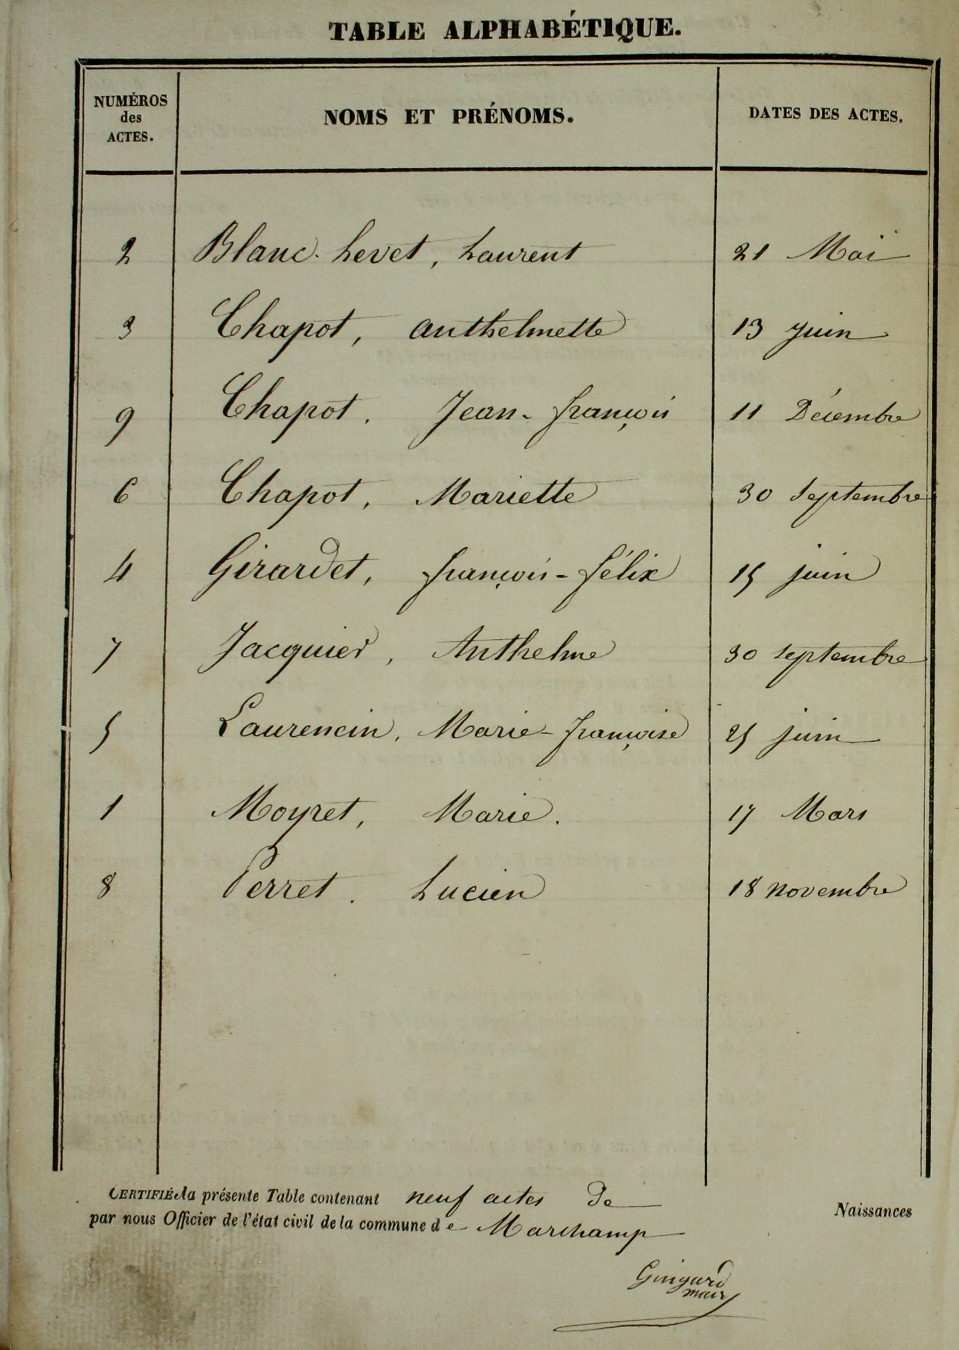 TABLE ALPHABÉTIQUE.
NUMÉROS des ACTES. NOMS ET PRÉNOMS. DATES DES ACTES.
2 Blanc-Levet, Laurent 21 Mai
3 Chapot, Anthelmette 13 Juin
9 Chapot, Jean-françois 11 Décembre
6 Chapot, Mariette 30 Septembre
4 Girardet, françois-félix 15 juin
7 Jacquier, Anthelme 30 Septembre
5 Laurencin, Marie-françoise 25 juin
1 Moyret, Marie. 17 Mars
8 Perret. Lucien 18 novembre
CERTIFIÉ la présente Table contenant neuf actes de Naissances
par nous Officier de l'état civil de la commune de Marchamp
maire